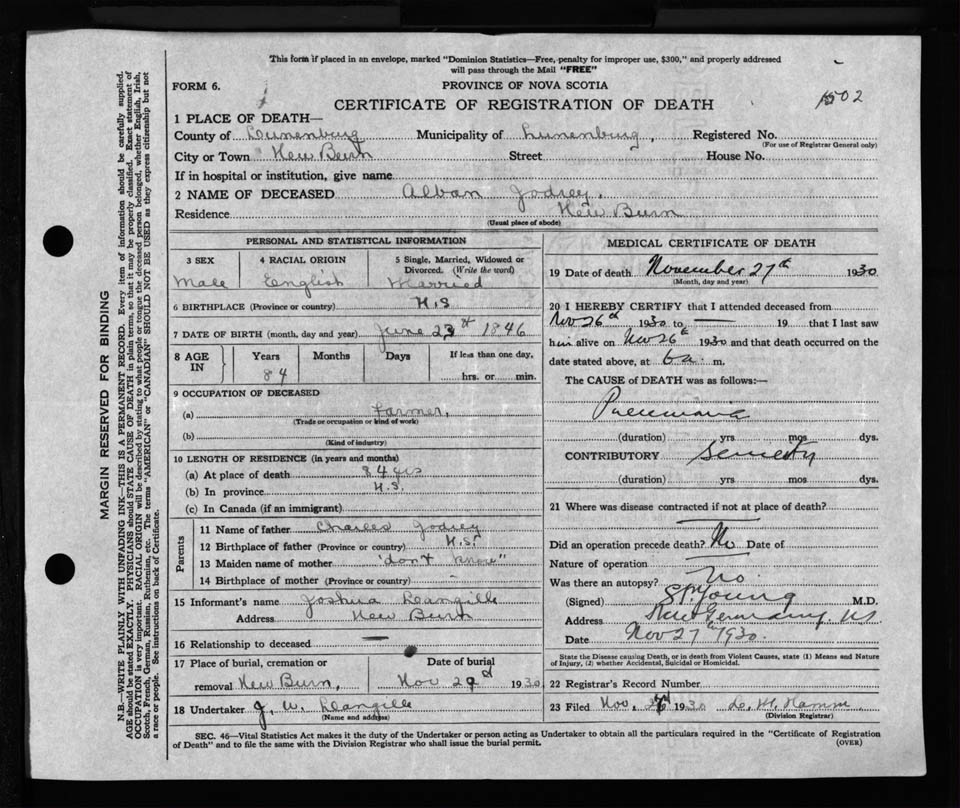 This form if placed in an envelope, marked "Dominion Statistics—Free, penalty for improper use, $300," and properly addressed
will pass through the Mail "FREE"
FORM 6.
PROVINCE OF NOVA SCOTIA
CERTIFICATE OF REGISTRATION OF DEATH
1502
1 PLACE OF DEATH—
County of Lunenburg Municipality of Lunenburg, Registered No.
(For use of Registrar General only)
City or Town New Burn Street House No.
If in hospital or institution, give name
2 NAME OF DECEASED Alban Jodrey,
Residence New Burn
(Usual place of abode)
PERSONAL AND STATISTICAL INFORMATION
3 SEX
Male
4 RACIAL ORIGIN
English
5 Single, Married, Widowed or
Divorced. (Write the word)
Married
6 BIRTHPLACE (Province or country) N.S
7 DATE OF BIRTH (month, day and year) June 23th 1846
8 AGE IN
Years
84
Months
Days
If less than one day,
hrs. or min.
9 OCCUPATION OF DECEASED
(a) Farmer,
(Trade or occupation or kind of work)
(b)
(Kind of industry)
10 LENGTH OF RESIDENCE (in years and months)
(a) At place of death 84 yrs
(b) In province N.S.
(c) In Canada (if an immigrant)
Parents
11 Name of father Charles Jodrey
12 Birthplace of father (Province or country) N.S.
13 Maiden name of mother "don't know"
14 Birthplace of mother (Province or country) -
15 Informant's name Joshua
Address New Burn
16 Relationship to deceased —
17 Place of burial, cremation or
removal New Burn,
Date of burial
Nov 29 1930
18 Undertaker J. W.
(Name and address)
MEDICAL CERTIFICATE OF DEATH
19 Date of death November 27th 1930
(Month, day and year)
20 I HEREBY CERTIFY that I attended deceased from
Nov 26th 1930 to — 19 that I last saw
him alive on Nov 26th 1930 and that death occurred on the
date stated above, at 6 a. m.
The CAUSE of DEATH was as follows:—
Pneumonia
(duration) yrs mos dys.
CONTRIBUTORY Senility
(duration) yrs mos dys.
21 Where was disease contracted if not at place of death?
Did an operation precede death? No Date of
Nature of operation
Was there an autopsy? No.
(Signed) Young M.D.
Address New Germany. NS
Date Nov 27th 1930.
State the Disease causing Death, or in death from Violent Causes, state (1) Means and Nature
of Injury, (2) whether Accidental, Suicidal or Homicidal.
22 Registrar's Record Number
23 Filed Nov. 1930
(Division Registrar)
SEC. 46—Vital Statistics Act makes it the duty of the Undertaker or person acting as Undertaker to obtain all the particulars required in the "Certificate of Registration
of Death" and to file the same with the Division Registrar who shall issue the burial permit.
(OVER)
MARGIN RESERVED FOR BINDING
N.B.—WRITE PLAINLY WITH UNFADING INK—THIS IS A PERMANENT RECORD. Every item of information should be carefully supplied.
AGE should be stated EXACTLY. PHYSICIANS should STATE CAUSE OF DEATH in plain terms, so that it may be properly classified. Exact statement of
OCCUPATION is very important. RACIAL ORIGIN will be described by stating to what people or tongue the deceased person belonged, whether English, Irish,
Scotch, French, German, Russian, Ruthenian, etc. The terms "AMERICAN" or "CANADIAN" SHOULD NOT BE USED as they express citizenship but not
a race or people. See instructions on back of Certificate.